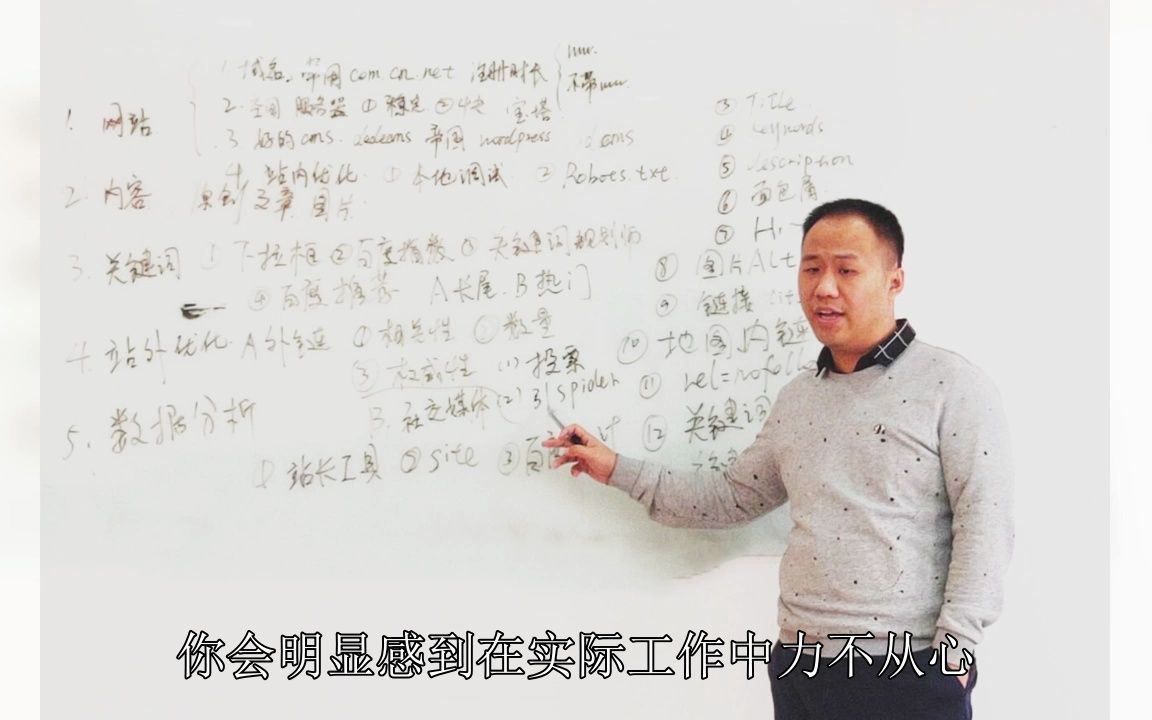 1. 域名. 常用 com cn. net 注册时长
www.
不带www
1. 网站
2. 服务器 ① 稳定 ② 快 宝塔
3 好的cms. dedecms 帝国 wordpress cms
4. 站内优化 ① 本地调试 ② Robots.txt
2. 内容 原创 文章 图片
3. 关键词 ① 下拉框 ② 百度指数 ③ 关键词规划师
④ 百度推荐 A长尾. B热门
4. 站外优化. A外链 ① 相关性 ② 数量
③ 权威性 (1) 投票
B. 社交媒体 (2) 引spider
5. 数据分析
① 站长工具 ② site ③ 百度
③ Title
④ keywords
⑤ description
⑥ 面包屑
⑦ H1
⑧ 图片Alt
⑨ 链接
⑩ 地图 内链
⑪ rel=nofollow
⑫ 关键词
你会明显感到在实际工作中力不从心